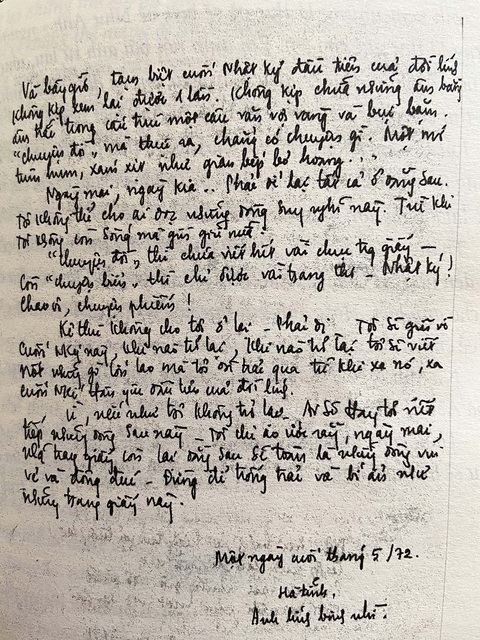 Và bây giờ, tạm biệt cuốn Nhật ký đầu tiên của đời lính
Không kịp xem lại được 1 lần. Không kịp chữa những âm bằng
âm trắc trong cấu trúc một câu văn vội vàng và bụi bặm.
"chuyện đó", mà thực ra, chẳng có chuyện gì. Một mớ
túm hum, xám xịt như gian bếp bỏ hoang...
Ngày mai, ngày kia.. Phải để lại tất cả ở đằng sau.
Tôi không thể cho ai đọc những dòng suy nghĩ này. Trừ khi
tôi không còn sống mà gìn giữ nữa!
"Chuyện đó", thì chưa viết hết vài chục trg giấy —
Còn "chuyện biển", thì chỉ được vài trang thứ — Nhật ký!
Chao ôi, chuyện phiếm!
Kẻ thù không cho tôi ở lại — Phải đi Tôi sẽ gửi về
cuốn NKý này, khi nào trở lại, khi nào trở lại tôi sẽ viết
nốt những gì lớn lao mà tôi đã trải qua từ khi xa nó, xa
cuốn NKý thân yêu đầu tiên của đời lính.
Ừ, nếu như tôi không trở lại — Ai sẽ thay tôi viết
tiếp những dòng sau này — Tôi chỉ ao ước rằng, ngày mai,
những trang giấy còn lại đằng sau sẽ toàn là những dòng vui
vẻ và đông đúc — Đừng để trống trải và bí ẩn như
những trang giấy này.
Một ngày cuối tháng 5/72.
Hà tĩnh,
Anh lính binh nhì.